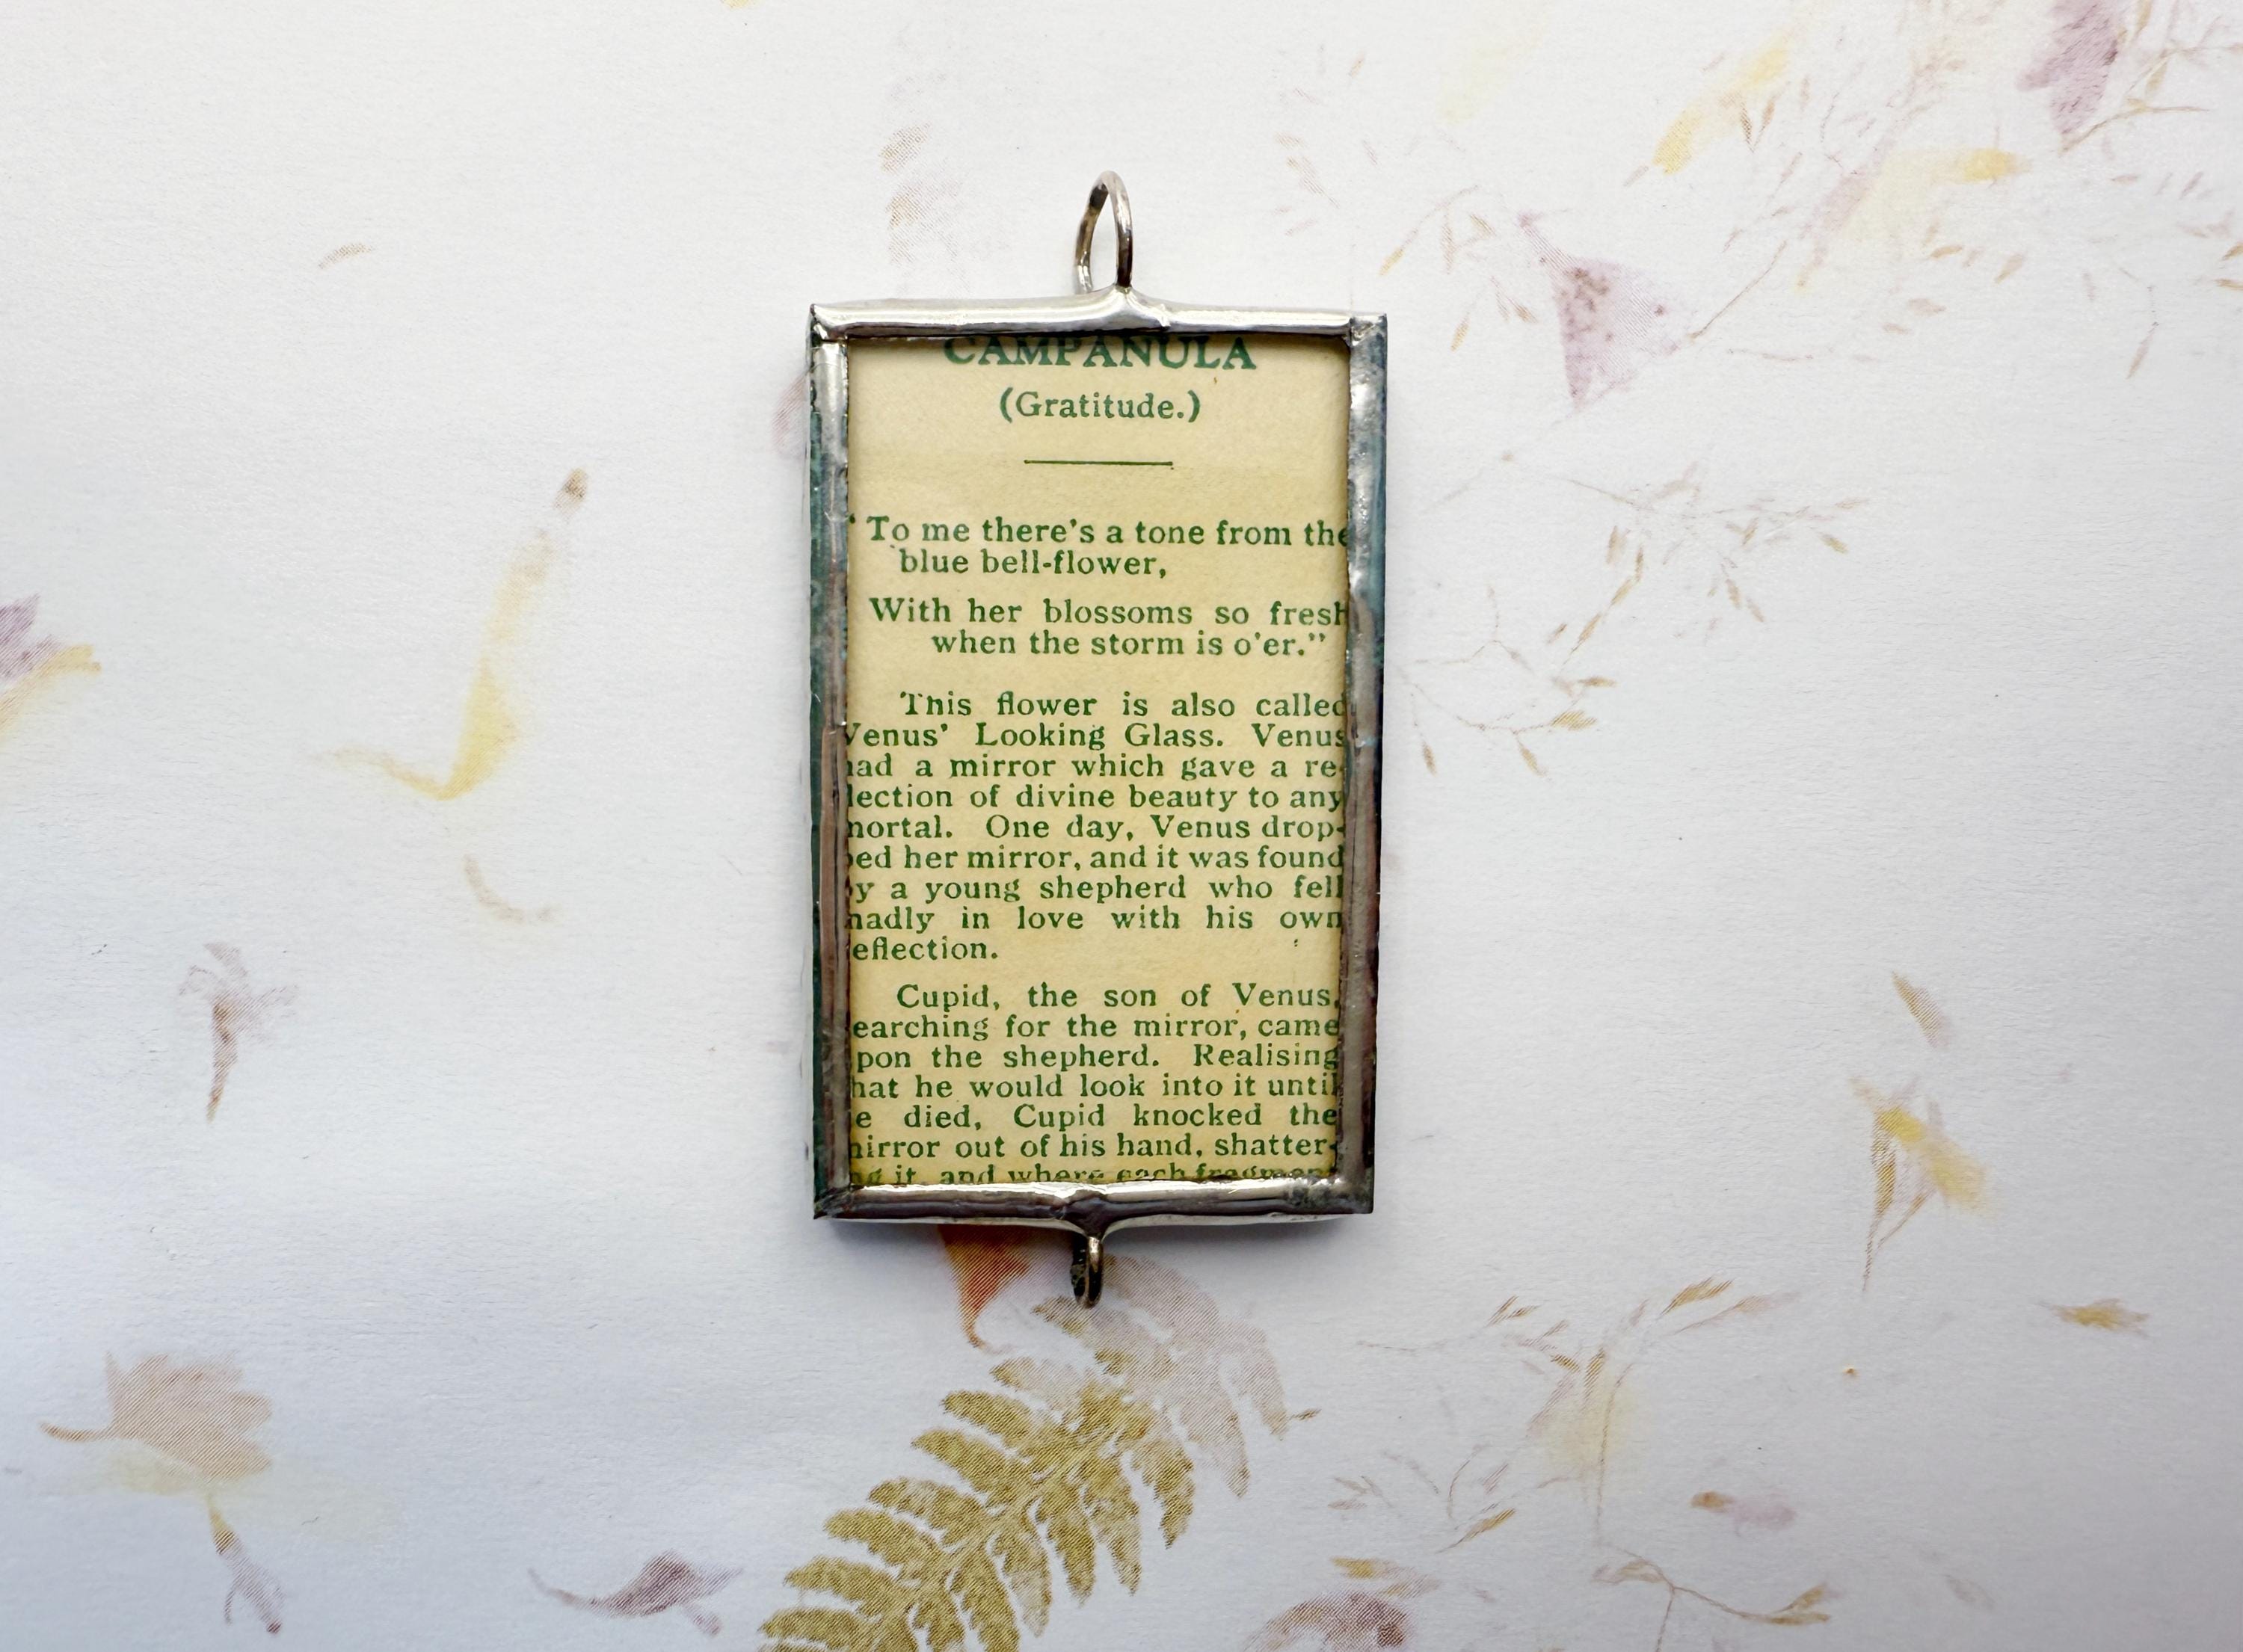 CAMPANULA
(Gratitude.)
"To me there's a tone from the
blue bell-flower,
With her blossoms so fresh
when the storm is o'er."
This flower is also called
Venus' Looking Glass. Venus
had a mirror which gave a re-
lection of divine beauty to any
mortal. One day, Venus drop-
ped her mirror, and it was found
by a young shepherd who fell
madly in love with his own
eflection.
Cupid, the son of Venus,
earching for the mirror, came
pon the shepherd. Realising
hat he would look into it until
e died, Cupid knocked the
mirror out of his hand, shatter-
ng it, and where each fragment